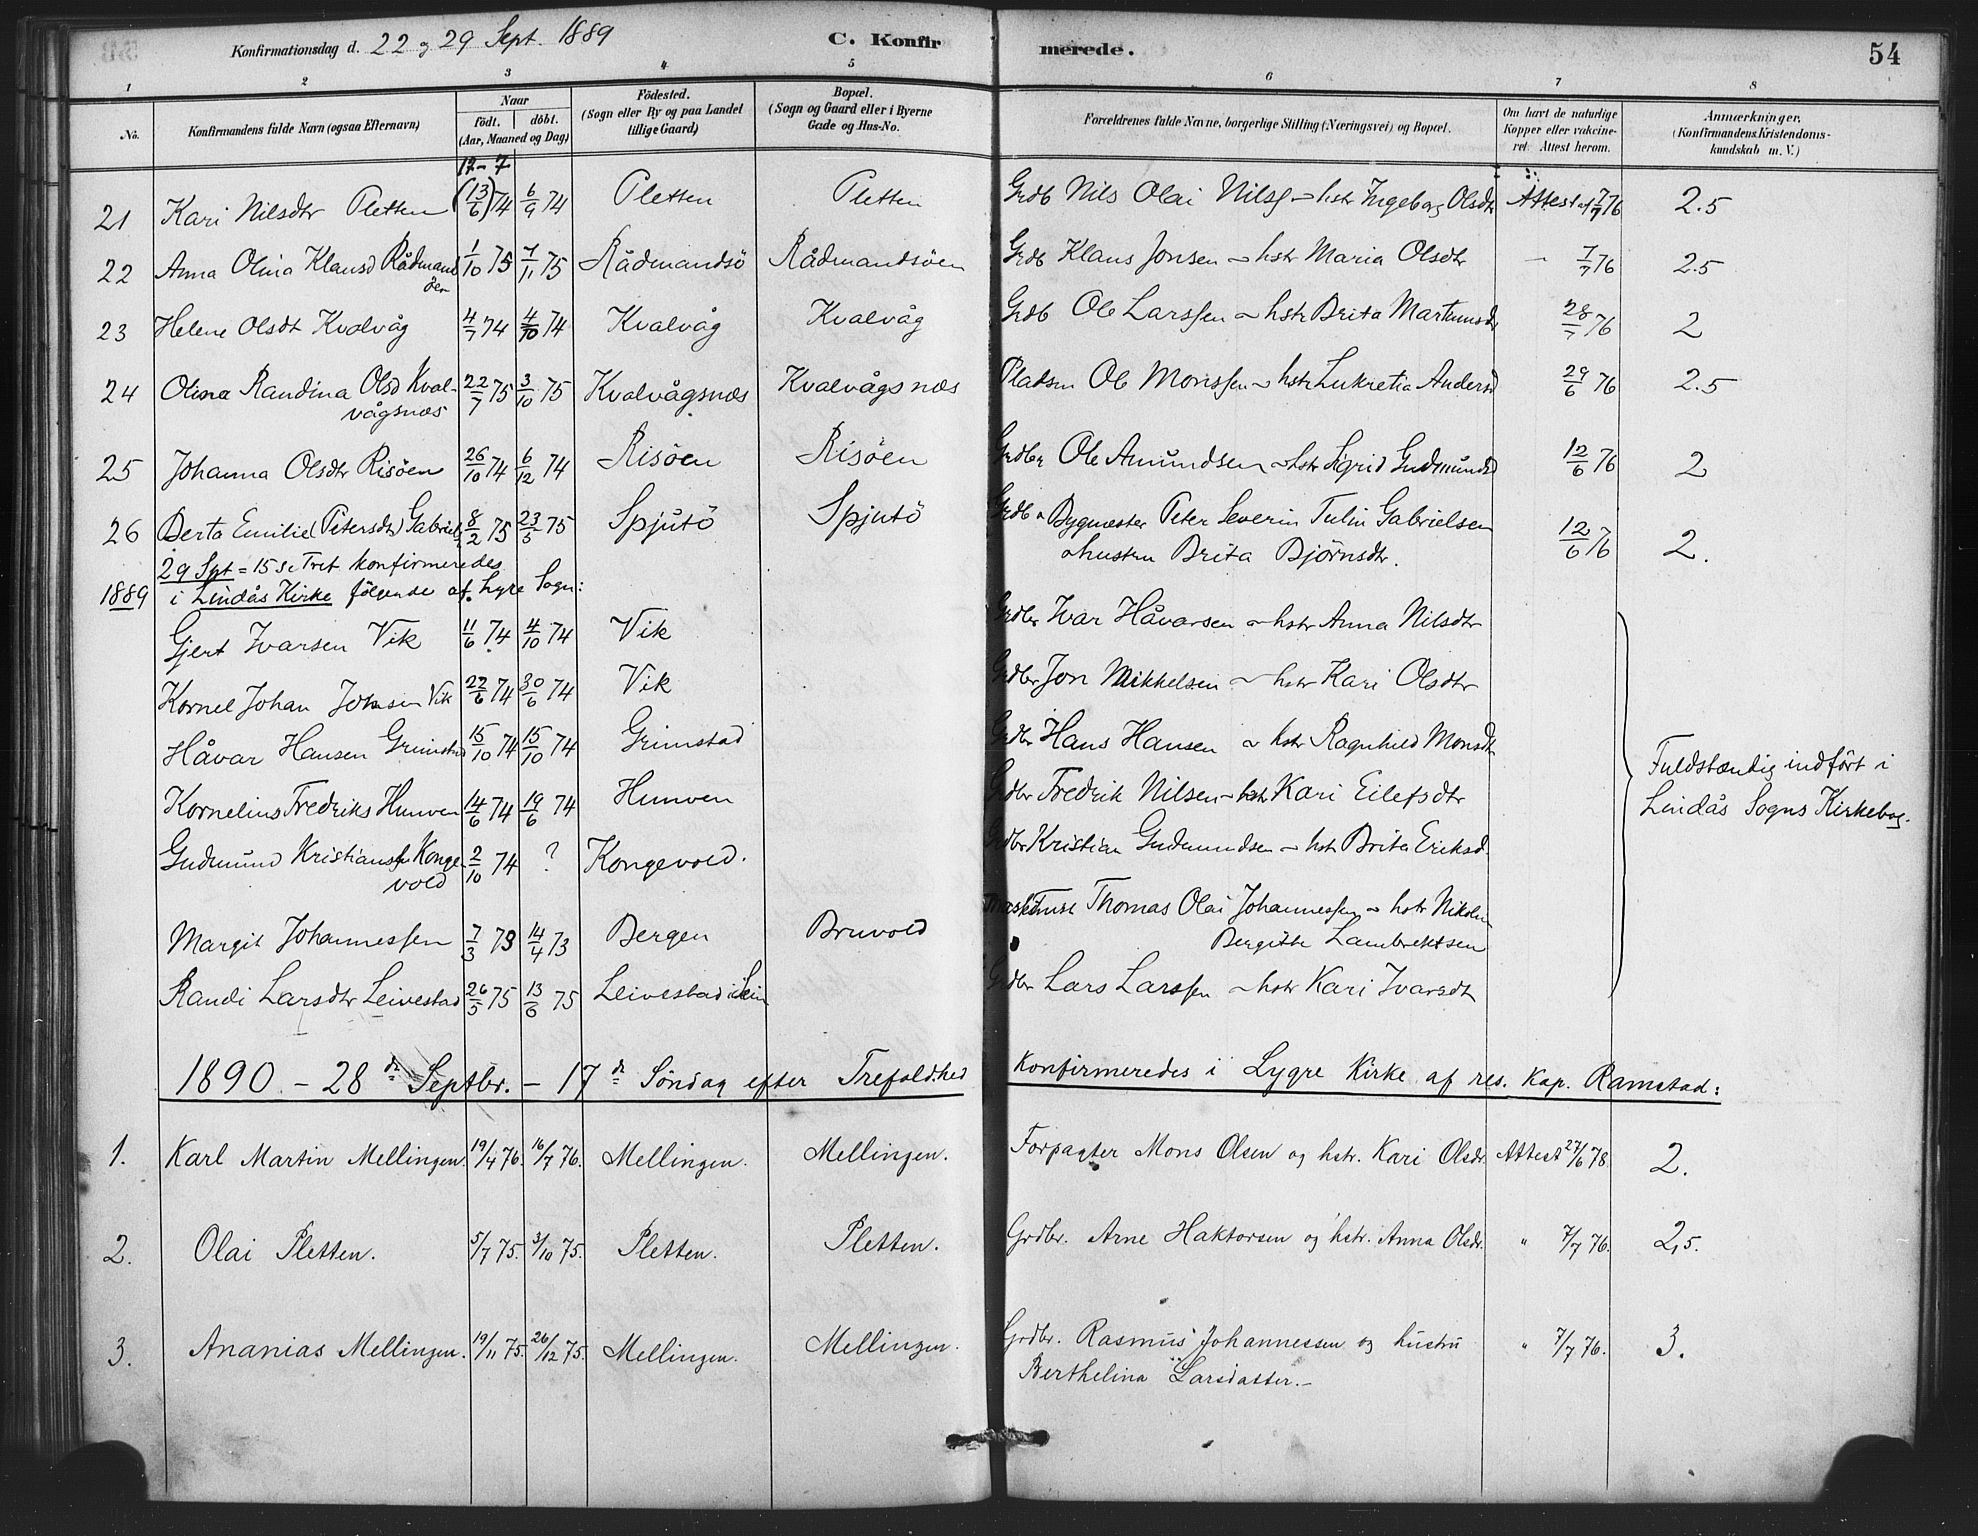 Konfirmationsdag d. 22 og 29 Sept. 1889 C. Konfirmerede. 54
1 2 3 4 5 6 7 8
No. Konfirmandens fulde Navn (ogsaa Efternavn) Naar födt. döbt. (Aar, Maaned og Dag) Födested. (Sogn eller By og paa Landet tillige Gaard) Bopæl. (Sogn og Gaard eller i Byerne Gade og Hus-No. Forældrenes fulde Navne, borgerlige Stilling (Næringsvei) og Bopæl. Om havt de naturlige Kopper eller vakcineret. Attest herom. Anmærkninger. (Konfirmandens Kristendomskundskab m. V.)
17-7
21 Kari Nilsdtr Pletten (13/6) 74 6/9 74 Pletten Pletten Grdb Nils Olai Nilss. - hstr Ingeborg Olsdtr Attest af 7/7 76 2.5
22 Anna Olina Klausd Rådmandsöen 1/10 75 7/11 75 Rådmandsö Rådmandsöen Grdb Klaus Jonsen - hstr Maria Olsdtr - 7/7 76 2.5
23 Helene Olsdt Kvalvåg 4/7 74 4/10 74 Kvalvåg Kvalvåg Grdb Ole Larssen - hstr Brita Martinusdr 28/7 76 2
24 Olina Randina Olsd Kvalvågsnæs 22/7 75 3/10 75 Kvalvågsnæs Kvalvågsnæs Pladsm Ole Monssen - hstr Lukretia Andersd 29/6 76 2.5
25 Johanna Olsdtr Risöen 26/10 74 6/12 74 Risöen Risöen Grdbr Ole Amundsen - hstr Sigrid Gudmundsd 12/6 76 2
26 Berta Emilie (Petersdtr) Gabriels. 8/2 75 23/5 75 Spjutö Spjutö Grdb & Bygmester Peter Severin Tulin Gabrielsen
& hustru Brita Björnsdtr. 12/6 76 2.
29 Spt = 15 S. e Tret konfirmeredes
1889 i Lindås Kirke fölgende af Lygre Sogn:
Gjert Ivarsen Vik 11/6 74 4/10 74 Vik Grdbr Ivar Håvarsen - hstr Anna Nilsdtr
Kornel Johan Johnsen Vik 22/6 74 30/6 74 Vik Grdbr Jon Mikkelsen - hstr Kari Olsdtr
Håvar Hansen Grimstad 15/10 74 15/10 74 Grimstad Grdbr Hans Hansen - hstr Ragnhild Monsdtr
Fuldstændig indfört i
Kornelius Fredriks Hunven 14/6 74 19/6 74 Hunven Grdbr Fredrik Nilsen - hstr Kari Eilefsdtr
Lindås Sogns Kirkebog.
Gudmund Kristianss. Kongevold 2/10 74 ? Kongevold. Grdbr Kristian Gudmundsen - hstr Brita Eriksd.
Margit Johannessen 7/3 73 14/4 73 Bergen Bruvold Thomas Olai Johannessen - hstr Nikoline
Bergitte Lambrektsen
Randi Larsdtr Leivestad 26/5 75 13/6 75 Leivestad i Grdbr Lars Larssen - hstr Kari Ivarsdt
1890 - 28de Septbr. - 17de Söndag efter Trefoldhed Konfirmeredes i Lygre Kirke af res. Kap. Ramstad:
1. Karl Martin Mellingen. 19/4 76. 16/7 76. Mellingen. Mellingen. Forpagter Mons Olsen og hstr. Kari Olsdr. Attest 27/6 78. 2.
2. Olai Pletten. 5/7 75. 3/10 75. Pletten. Pletten. Grdbr. Arne Haktorsen og hstr. Anna Olsdr. " 7/7 76. 2,5.
3. Ananias Mellingen. 19/11 75. 26/12 75. Mellingen. Mellingen. Grdbr. Rasmus Johannessen og hustru " 7/7 76. 3.
Berthelina Larsdatter.-